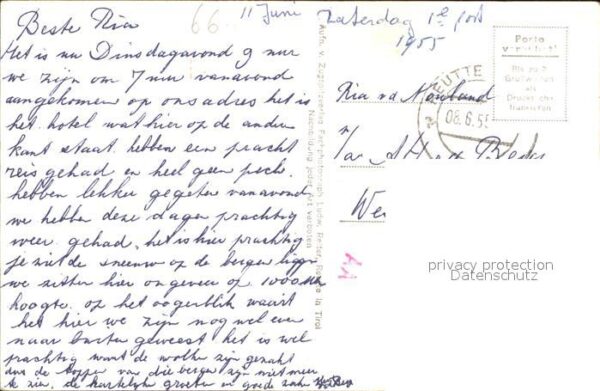 66
11 Juni Zaterdag 1e post
1955
Beste Ria
Het is nu Dinsdagavond 9 uur
we zijn om 7 uur vanavond
aangekomen op ons adres het is
het hotel wat hier op de andere
kant staat. hebben een pracht
reis gehad en heel geen pech.
hebben lekker gegeten vanavond
we hebben deze dagen prachtig
weer gehad, het is hier prachtig
je ziet de sneeuw op de bergen liggen
we zitten hier ongeveer op 1000 M
hoogte. op het oogenblik waait
het hier we zijn nog wel even
naar buiten geweest het is wel
prachtig want de wolken zijn gezakt
aan de toppen van die bergen zijn niet meer
te zien. de hartelijke groeten en goede
Ludw. Reiter, Reutte in Tirol
Nachbildung jeder Art verboten
Porto
verbilligt
Bis zu 5
Grußworten
als
Drucksache
frankieren
REUTTE
08.6.55
Ria vd
We
privacy protection
Datenschutz